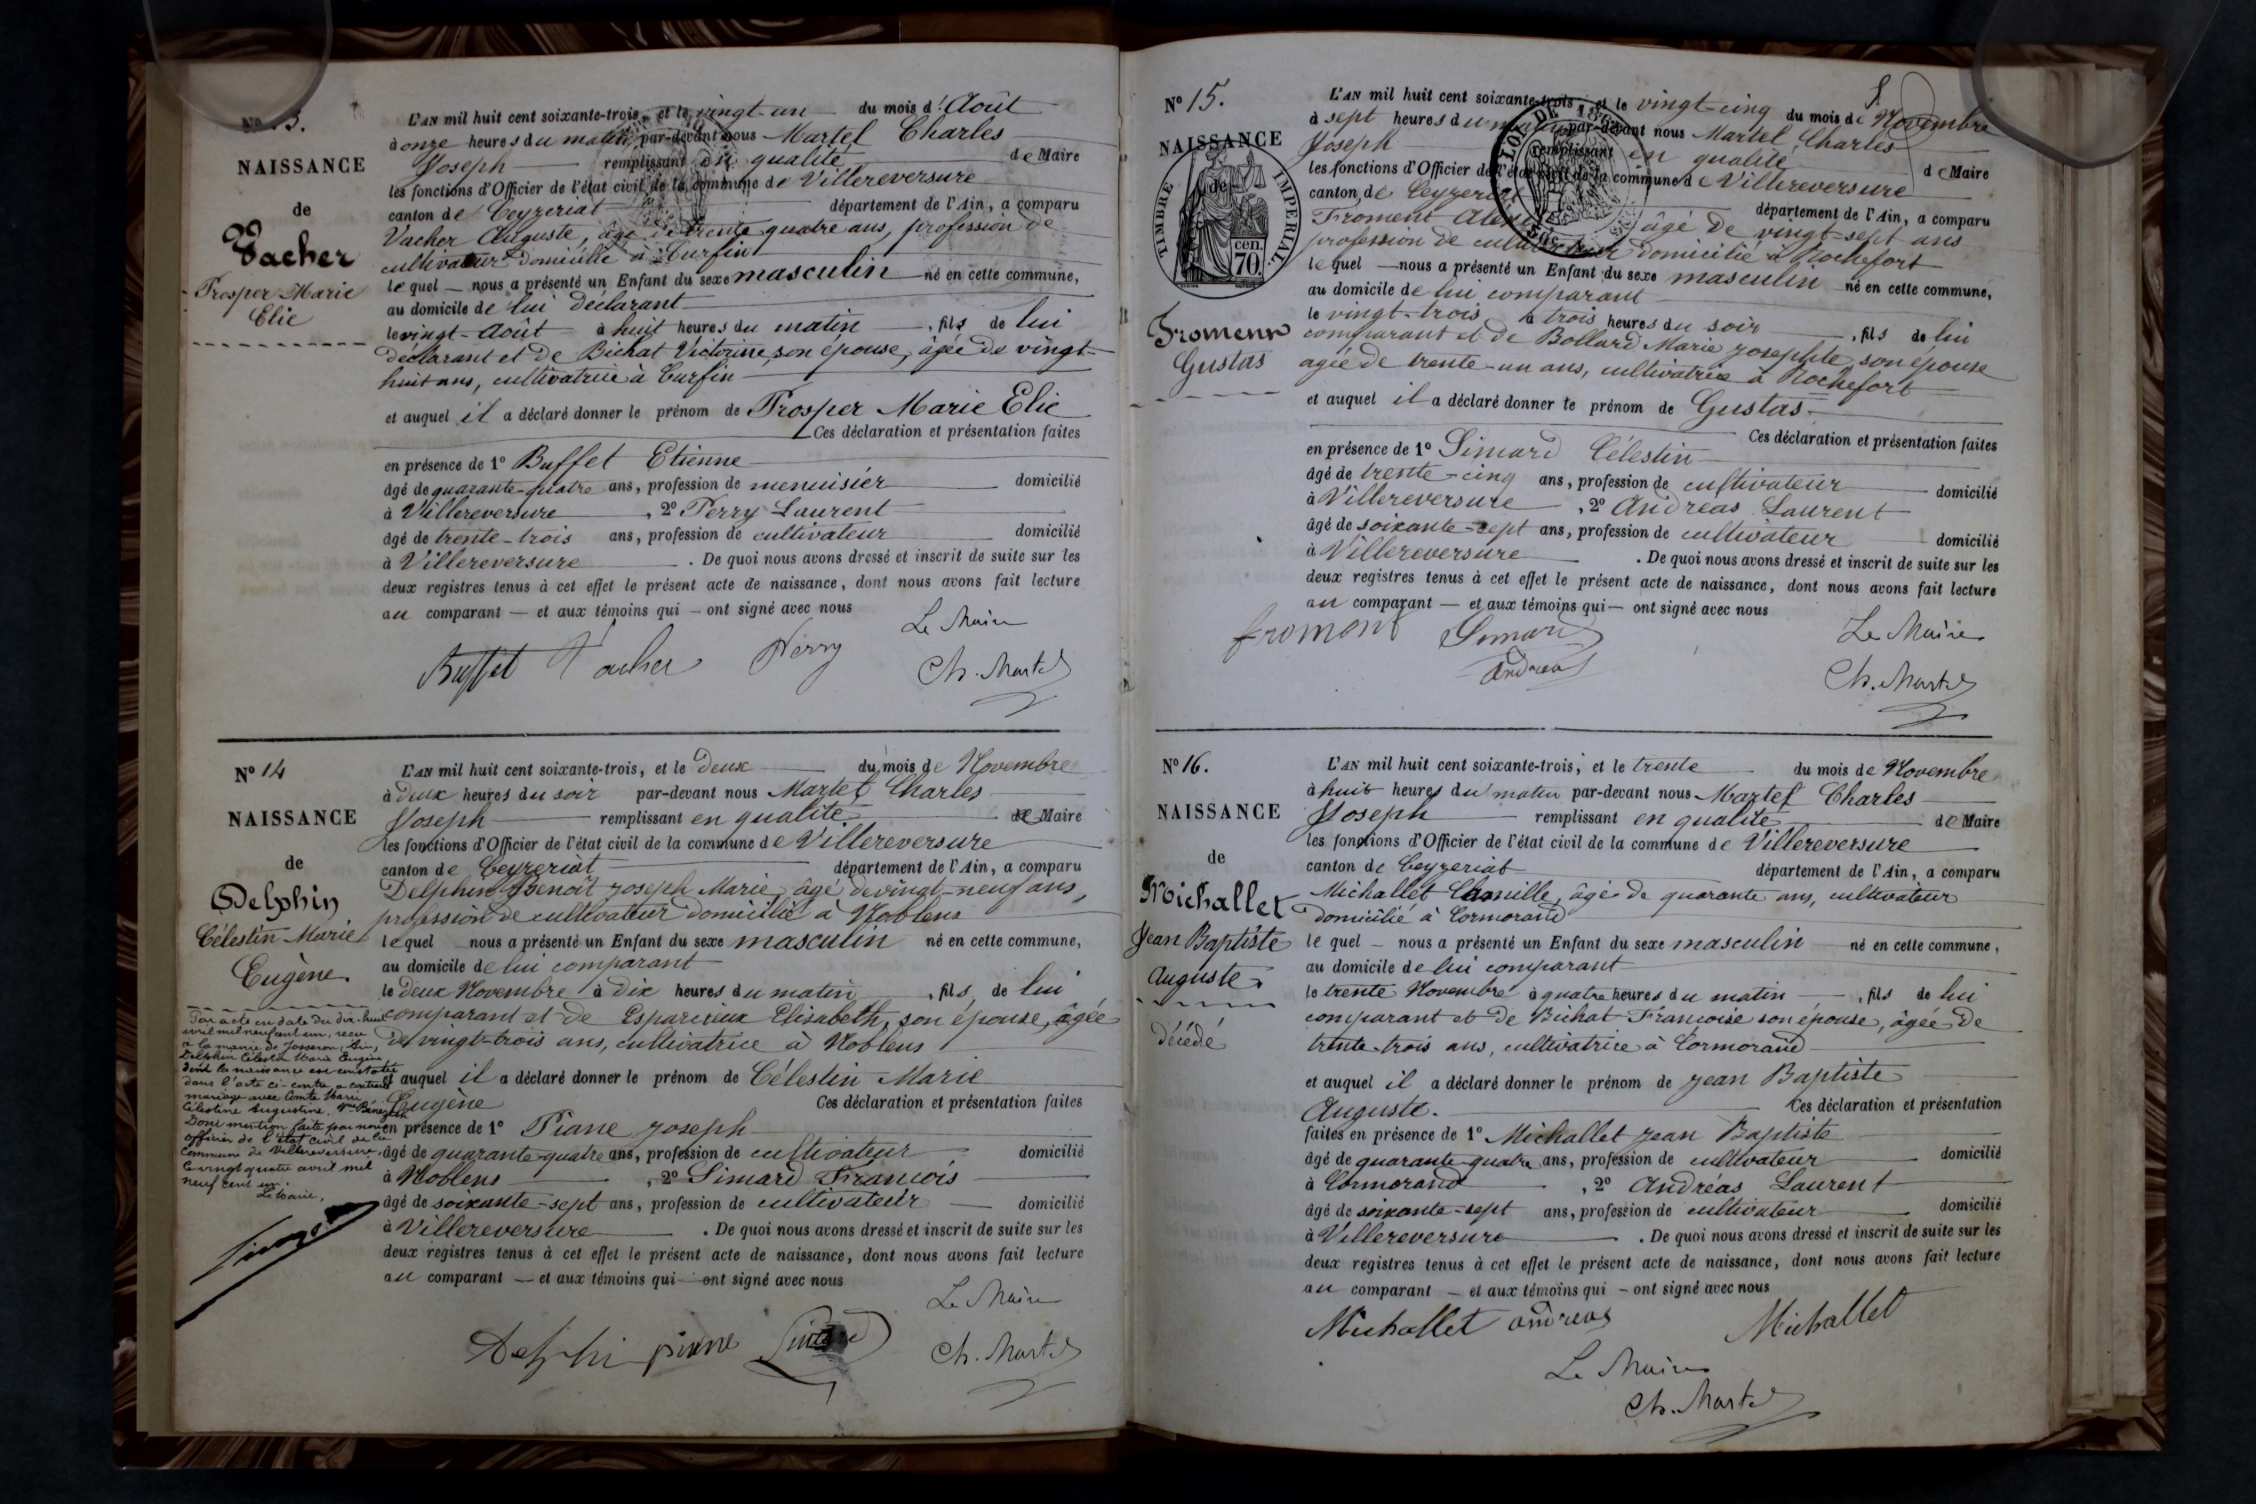 N° 13.
NAISSANCE
de
Vacher
Prosper Marie
Elie
L'AN mil huit cent soixante-trois, et le vingt-un du mois d'Août
à onze heures du matin par-devant nous Martel Charles
Joseph remplissant en qualité de Maire
les fonctions d'Officier de l'état civil de la commune de Villereversure
canton de Ceyzeriat département de l'Ain, a comparu
Vacher Auguste, âgé de trente quatre ans, profession de
cultivateur domicilié à Turfin
lequel nous a présenté un Enfant du sexe masculin né en cette commune,
au domicile de lui déclarant
le vingt-Août à huit heures du matin, fils de lui
déclarant et de Bichat Victorine, son épouse, âgée de vingt-
huit ans, cultivatrice à Curfin
et auquel il a déclaré donner le prénom de Prosper Marie Elie
Ces déclaration et présentation faites
en présence de 1° Buffet Etienne
âgé de quarante-quatre ans, profession de menuisier domicilié
à Villereversure, 2° Perry Laurent
âgé de trente-trois ans, profession de cultivateur domicilié
à Villereversure. De quoi nous avons dressé et inscrit de suite sur les
deux registres tenus à cet effet le présent acte de naissance, dont nous avons fait lecture
au comparant — et aux témoins qui — ont signé avec nous
Le Maire
Buffet Vacher Perry Ch. Martel
N° 14
NAISSANCE
de
Delphin
Célestin Marie
Eugène.
Par acte en date du dix-huit
avril mil neuf cent un, reçu
à la mairie de Josseron, Ain,
Delphin Célestin Marie Eugène
dont la naissance est constatée
dans l'acte ci-contre a contracté
mariage avec Comte Marie
Célestine Augustine, Vve
Dont mention faite par nous
officier de l'état civil de la
Commune de Villereversure,
le vingt quatre avril mil
neuf cent un.
Le Maire,
L'AN mil huit cent soixante-trois, et le deux du mois de Novembre
à deux heures du soir par-devant nous Martel Charles
Joseph remplissant en qualité de Maire
les fonctions d'Officier de l'état civil de la commune de Villereversure
canton de Ceyzeriat département de l'Ain, a comparu
Delphin Benoit Joseph Marie, âgé de vingt-neuf ans,
profession de cultivateur domicilié à Noblens
lequel nous a présenté un Enfant du sexe masculin né en cette commune,
au domicile de lui comparant
le deux Novembre à dix heures du matin, fils de lui
comparant et de Esparcieux Elisabeth, son épouse, âgée
de vingt-trois ans, cultivatrice à Noblens
et auquel il a déclaré donner le prénom de Célestin Marie
Eugène Ces déclaration et présentation faites
en présence de 1° Piane Joseph
âgé de quarante-quatre ans, profession de cultivateur domicilié
à Noblens, 2° Simard François
âgé de soixante-sept ans, profession de cultivateur domicilié
à Villereversure. De quoi nous avons dressé et inscrit de suite sur les
deux registres tenus à cet effet le présent acte de naissance, dont nous avons fait lecture
au comparant — et aux témoins qui — ont signé avec nous
Le Maire
Delphin piane Simard Ch. Martel
N° 15.
NAISSANCE
de
TIMBRE IMPERIAL.
cen.
70
Froment
Gustas
LOI DE 1862
L'AN mil huit cent soixante-trois, et le vingt-cinq du mois de Novembre
à sept heures du matin par-devant nous Martel Charles
Joseph remplissant en qualité de Maire
les fonctions d'Officier de l'état civil de la commune de Villereversure
canton de Ceyzeriat département de l'Ain, a comparu
Froment âgé de vingt-sept ans
profession de cultivateur domicilié à Rochefort
lequel — nous a présenté un Enfant du sexe masculin né en cette commune,
au domicile de lui comparant
le vingt-trois à trois heures du soir, fils de lui
comparant et de Bollard Marie Josephte, son épouse
agée de trente-un ans, cultivatrice à Rochefort
et auquel il a déclaré donner le prénom de Gustas.
Ces déclaration et présentation faites
en présence de 1° Simard Célestin
âgé de trente-cinq ans, profession de cultivateur domicilié
à Villereversure, 2° Andréas Laurent
âgé de soixante-sept ans, profession de cultivateur domicilié
à Villereversure. De quoi nous avons dressé et inscrit de suite sur les
deux registres tenus à cet effet le présent acte de naissance, dont nous avons fait lecture
au comparant — et aux témoins qui — ont signé avec nous
froment Simard Le Maire
Andreas Ch. Martel
N° 16.
NAISSANCE
de
Michallet
Jean Baptiste
Auguste
décédé
L'AN mil huit cent soixante-trois, et le trente du mois de Novembre
à huit heures du matin par-devant nous Martel Charles
Joseph remplissant en qualité de Maire
les fonctions d'Officier de l'état civil de la commune de Villereversure
canton de Ceyzeriat département de l'Ain, a comparu
Michallet Camille, âgé de quarante ans, cultivateur
domicilié à Cormorand
lequel — nous a présenté un Enfant du sexe masculin né en cette commune,
au domicile de lui comparant
le trente Novembre à quatre heures du matin, fils de lui
comparant et de Bichat Françoise son épouse, âgée de
trente-trois ans, cultivatrice à Cormorand
et auquel il a déclaré donner le prénom de Jean Baptiste
Auguste. Ces déclaration et présentation
faites en présence de 1° Michallet Jean Baptiste
âgé de quarante-quatre ans, profession de cultivateur domicilié
à Cormorand, 2° Andréas Laurent
âgé de soixante-sept ans, profession de cultivateur domicilié
à Villereversure. De quoi nous avons dressé et inscrit de suite sur les
deux registres tenus à cet effet le présent acte de naissance, dont nous avons fait lecture
au comparant — et aux témoins qui — ont signé avec nous
Michallet andreas Michallet
Le Maire
Ch. Martel